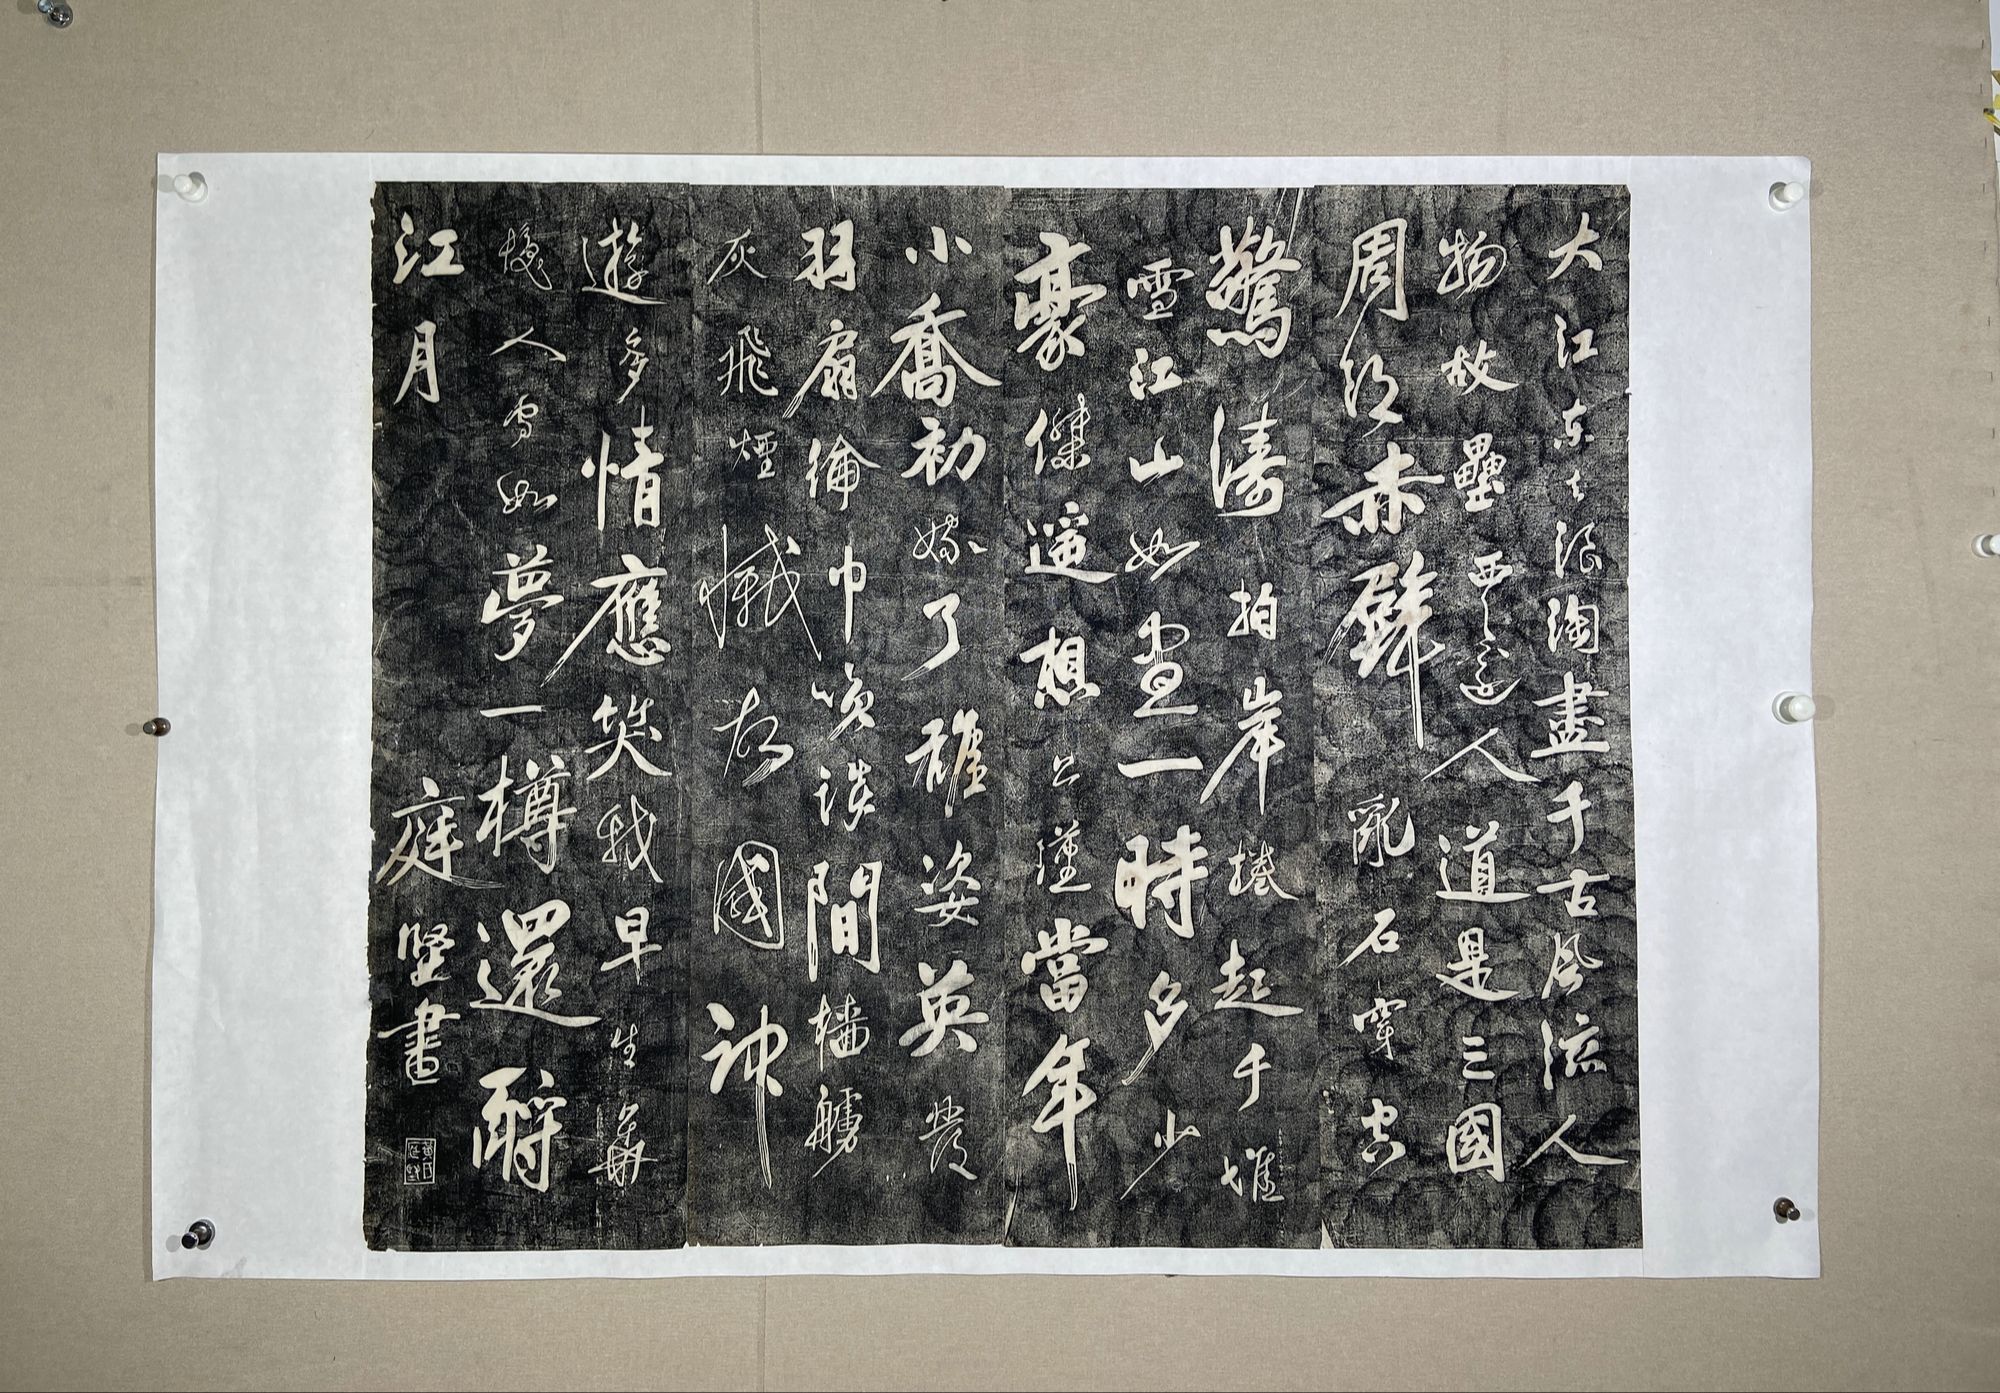 大江東去浪淘盡千古風流人
物故壘西邊人道是三國
周郎赤壁亂石穿空
驚濤拍岸捲起千堆
雪江山如畫一時多少
豪傑遥想公瑾當年
小喬初嫁了雄姿英發
羽扇綸巾笑談間檣艣
灰飛煙滅故國神
遊多情應笑我早生華
髮人如夢一樽還酹
江月
庭堅書